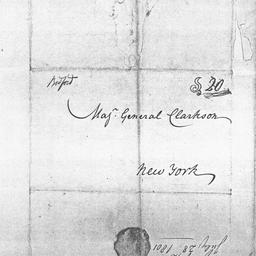 Bedford
$ 20
Maj. General Clarkson
New York
July 28 1801